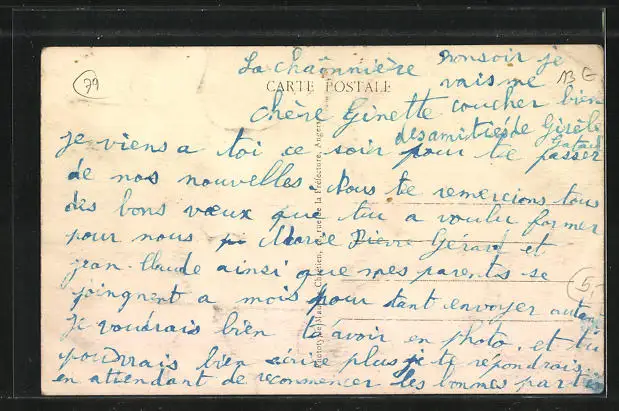 79
La chaônnière
bonsoir je
vais me
13 E
CARTE POSTALE
coucher bien
chère Ginette
des amitiés de Gisèle
je viens a toi ce soir pour te passer
de nos nouvelles. Nous te remercions tous
des bons vœux que tu a voulu former
pour nous Marie Pierre Gérard et
jean-Claude ainsi que mes parents se
joingnent a mois pour tant envoyer autant
5,-
Je voudrais bien ta avoir en photo. et tu
pourrais bien écrire plus je te répondrais
en attendant de recommencer les bonnes parties